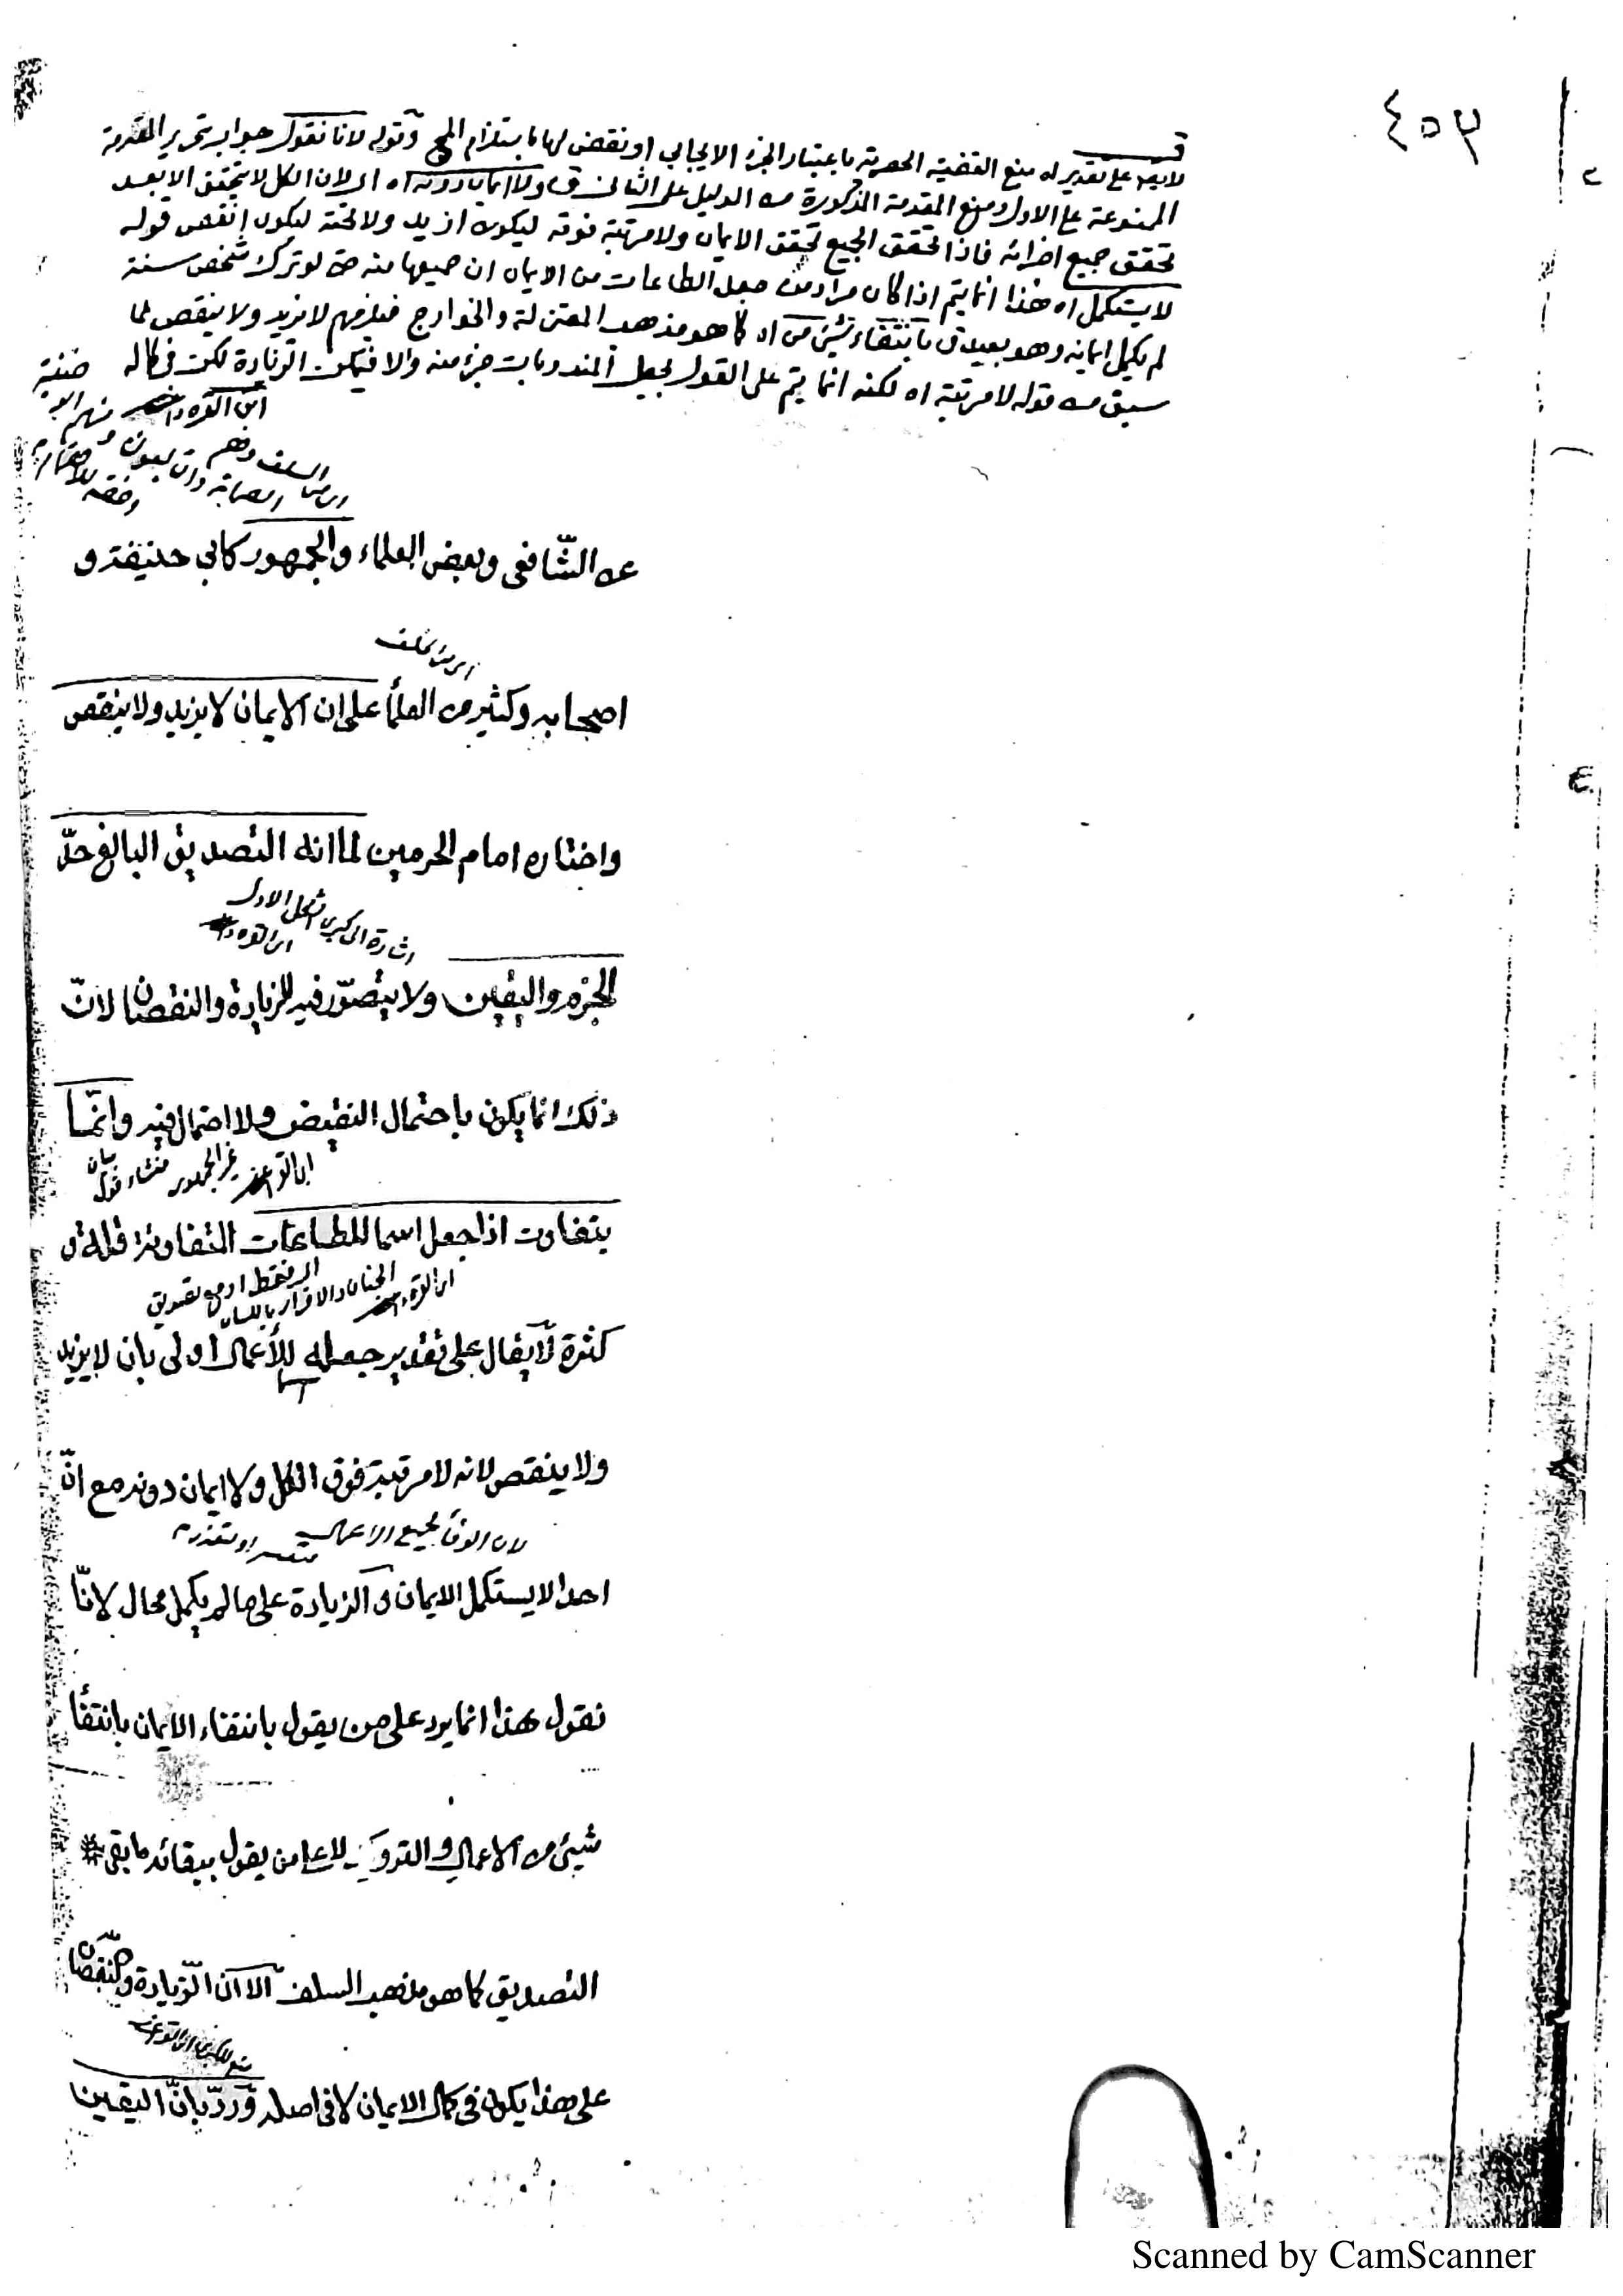 ٤٥٣
لا يقال على تقدير اه منع القضية الحصرية باعتبار الجزء الايجابي او نقض لها باستلزام المح وقوله لانا نقول جواب بتحرير المقدمة
الممنوعة على الاول ومنع المقدمة المذكورة من الدليل على الثاني ولا ايمان دونه اه اى لان الكل لا يتحقق الا بعد
تحقق جميع اجزائه فاذا تحقق الجميع تحقق الايمان ولا مرتبة فوقه ليكون ازيد ولا تحته ليكون انقص قوله
لا يستكمل اه هذا انما يتم اذا كان مراد من جعل الطاعات من الايمان ان جميعها منه حتى لو ترك شخص سنة
لم يكمل ايمانه وهو بعيد بانتفاء شيء من اه كما هو مذهب المعتزلة والخوارج فيلزمهم لا يزيد ولا ينقص لما
سبق من قوله لا مرتبة اه لكنه انما يتم على القول بجعل المندوبات جزء منه والا فيمكن الزيادة لكن في كماله
ابن القره داغى
اى من السلف وهم
الصحابة والتابعون ومنهم ابو حنيفة
عن الشّافعى وبعض العلماء والجمهور كابى حنيفة و
اى من الخلف
اصحابه وكثير من العلمأ على ان الايمان لا يزيد ولا ينقص
واختاره امام الحرمين لما انه التصديق البالغ حدّ
اشارة الى كبرى الشكل الاول
ابن القره داغى
الجزم واليقين ولا يتصوّر فيه الزيادة والنقصان لانّ
ذلك انما يكون باحتمال النقيض ولا احتمال فيه وانّما
بيان منشاء قول غير الجمهور
يتفاوت اذا جعل اسما للطاعات المتفاوتة قلة و
اى فقط او مع تصديق
الجنان والاقرار باللسان
كثرة لا يقال على تقدير جعله اسما للأعمال اولى بان لا يزيد
ولا ينقص لانه لا مرتبة فوق الكل ولا ايمان دونه مع انّ
لان الوفأ بجميع الاعمال متعسر او متعذر
احدا لا يستكمل الايمان و الزيادة على ما لم يكمل محال لانّا
نقول هذا انما يرد على من يقول بانتفاء الايمان بانتفأ
شيئ من الاعمال والتروك لا على من يقول ببقائه ما بقى
التصديق كما هو مذهب السلف الا ان الزّيادة والنّقصان
على هذا يكون فى كمال الايمان لا فى اصله وردّ بانّ اليقين
Scanned by CamScanner